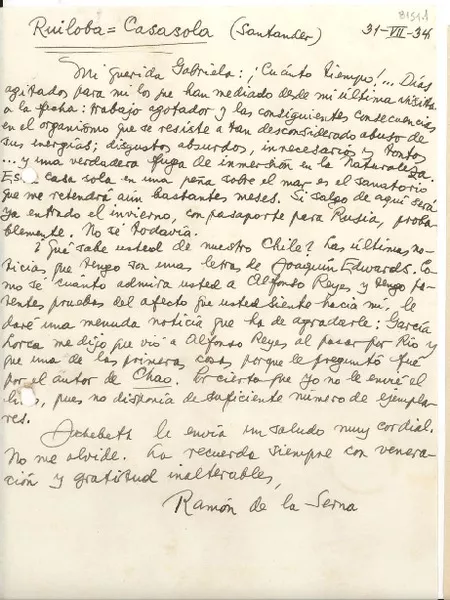 Ruiloba = Casasola (Santander) 31-VII-34
Mi querida Gabriela: ¡Cuánto tiempo!... Días
agitados para mí los que han mediado desde mi última visita
a la fecha: trabajo agotador y las consiguientes consecuencias
en el organismo que se resiste a tan desconsiderado abuso de
sus energías; disgustos absurdos, innecesarios y tontos
... y una verdadera fuga de inmersión en la Naturaleza.
Esta casa sola en una peña sobre el mar es el sanatorio
que me retendrá aún bastantes meses. Si salgo de aquí será
ya entrado el invierno, con pasaporte para Rusia, proba-
blemente. No sé todavía.
¿Qué sabe usted de nuestro Chile? Las últimas no-
ticias que tengo son unas letras de Joaquín Edwards. Co-
mo sé cuánto admira usted a Alfonso Reyes y tengo pa-
tentes pruebas del afecto que usted siente hacia mí, le
daré una menuda noticia que ha de agradarle: García
Lorca me dijo que vió a Alfonso Reyes al pasar por Río y
que una de las primeras cosas porque le preguntó fué
por el autor de Chao. Por cierto que yo no le envié el
libro, pues no disponía de suficiente número de ejempla-
res.
le envía un saludo muy cordial.
No me olvide. La recuerda siempre con venera-
ción y gratitud inalterables,
Ramón de la Serna